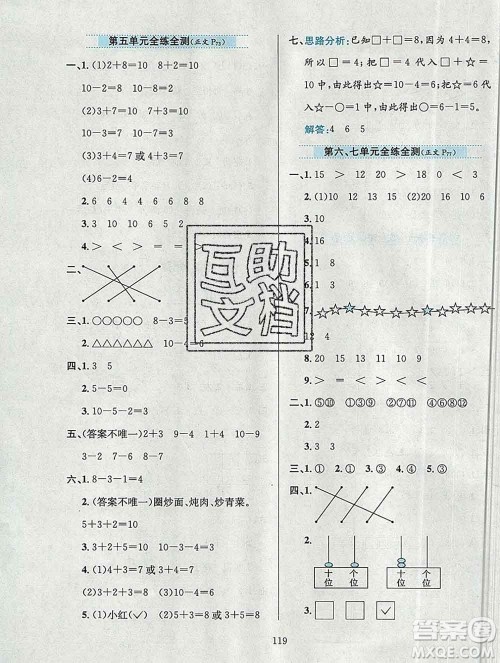 第五单元全练全测(正文 P₇₃)
一、1.(1)2+8=10 8+2=10
10-2=8 10-8=2
(2)3+4=7 4+3=7
7-3=4 7-4=3
(3)7+3=10 3+7=10
10-3=7 10-7=3
(4)6-2=4
2. 6 7 8 3 9 8
3. 3 10 10 5 8
4. > < = > <
二、
三、1. ○○○○○ 8-3=5
2. △△△△△△ 10-4=6
四、1. 3 5
2. 5-5=0
3. 10-5-2=3
五、(答案不唯一)2+3 9-4 1+4
6-1 5+0
六、1. 8-3-4=1
2. (答案不唯一)圈炒面、炖肉、炒青菜。
5+3+2=10
3. 3+2+5=10 10-3-4=3
4. (1)3+4=7(或4+3=7)
(2)7+3=10(或3+7=10)
5. (1)小红(✓) (2)8-5=3
七、思路分析:已知□+□=8,因为4+4=8,
所以□=4;把□=4代入☆-□=2,
由此得出☆=6;把☆=6代入○+1=6,
由此得出○=6-1=5。
解答:4 6 5
第六、七单元全练全测(正文 P₇₇)
一、1. 15 > 12 > 10
2. (1)10 15 18 (2)20 16 10
3. 10
4. 16
8. 20 15 9 13
9. > < = <
二、1. ⑤⑩
三、1. ① 2. ① 3. ①
四、1.
2.
十位 个位 十位 个位
3. □ □ ☑
119
互助文档
答案圈
MXQE.COM